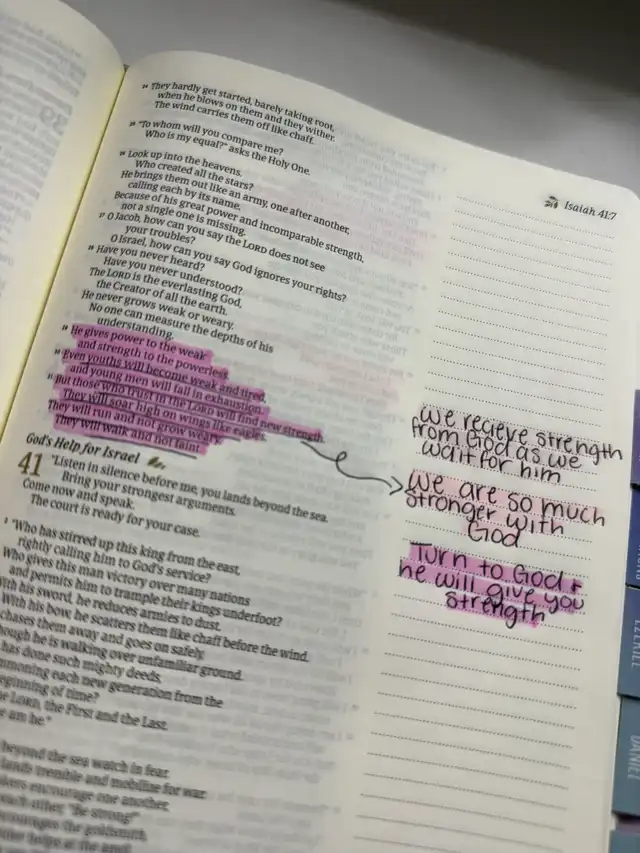 ²⁴ They hardly get started, barely taking root,
when he blows on them and they wither.
The wind carries them off like chaff.
²⁵ "To whom will you compare me?
Who is my equal?" asks the Holy One.
²⁶ Look up into the heavens.
Who created all the stars?
He brings them out like an army, one after another,
calling each by its name.
Because of his great power and incomparable strength,
not a single one is missing.
²⁷ O Jacob, how can you say the LORD does not see
your troubles?
O Israel, how can you say God ignores your rights?
²⁸ Have you never heard?
Have you never understood?
The LORD is the everlasting God,
the Creator of all the earth.
He never grows weak or weary.
No one can measure the depths of his
understanding.
²⁹ He gives power to the weak
and strength to the powerless.
³⁰ Even youths will become weak and tired,
and young men will fall in exhaustion.
³¹ But those who trust in the LORD will find new strength.
They will soar high on wings like eagles.
They will run and not grow weary.
They will walk and not faint.
God's Help for Israel
41 "Listen in silence before me, you lands beyond the sea.
Bring your strongest arguments.
Come now and speak.
The court is ready for your case.
² "Who has stirred up this king from the east,
rightly calling him to God's service?
Who gives this man victory over many nations
and permits him to trample their kings underfoot?
With his sword, he reduces armies to dust.
With his bow, he scatters them like chaff before the wind.
chases them away and goes on safely,
though he is walking over unfamiliar ground.
has done such mighty deeds,
summoning each new generation from the
beginning of time?
the LORD, the First and the Last.
am he."
beyond the sea watch in fear.
lands tremble and mobilize for war.
encourage one another,
each other, "Be strong!"
encourages the goldsmith,
helps at the anvil.
Isaiah 41:7
We recieve strength
from God as we
wait for him
We are so much
stronger with
God
Turn to God +
he will give you
strength
39
EZEKIEL
DANIEL